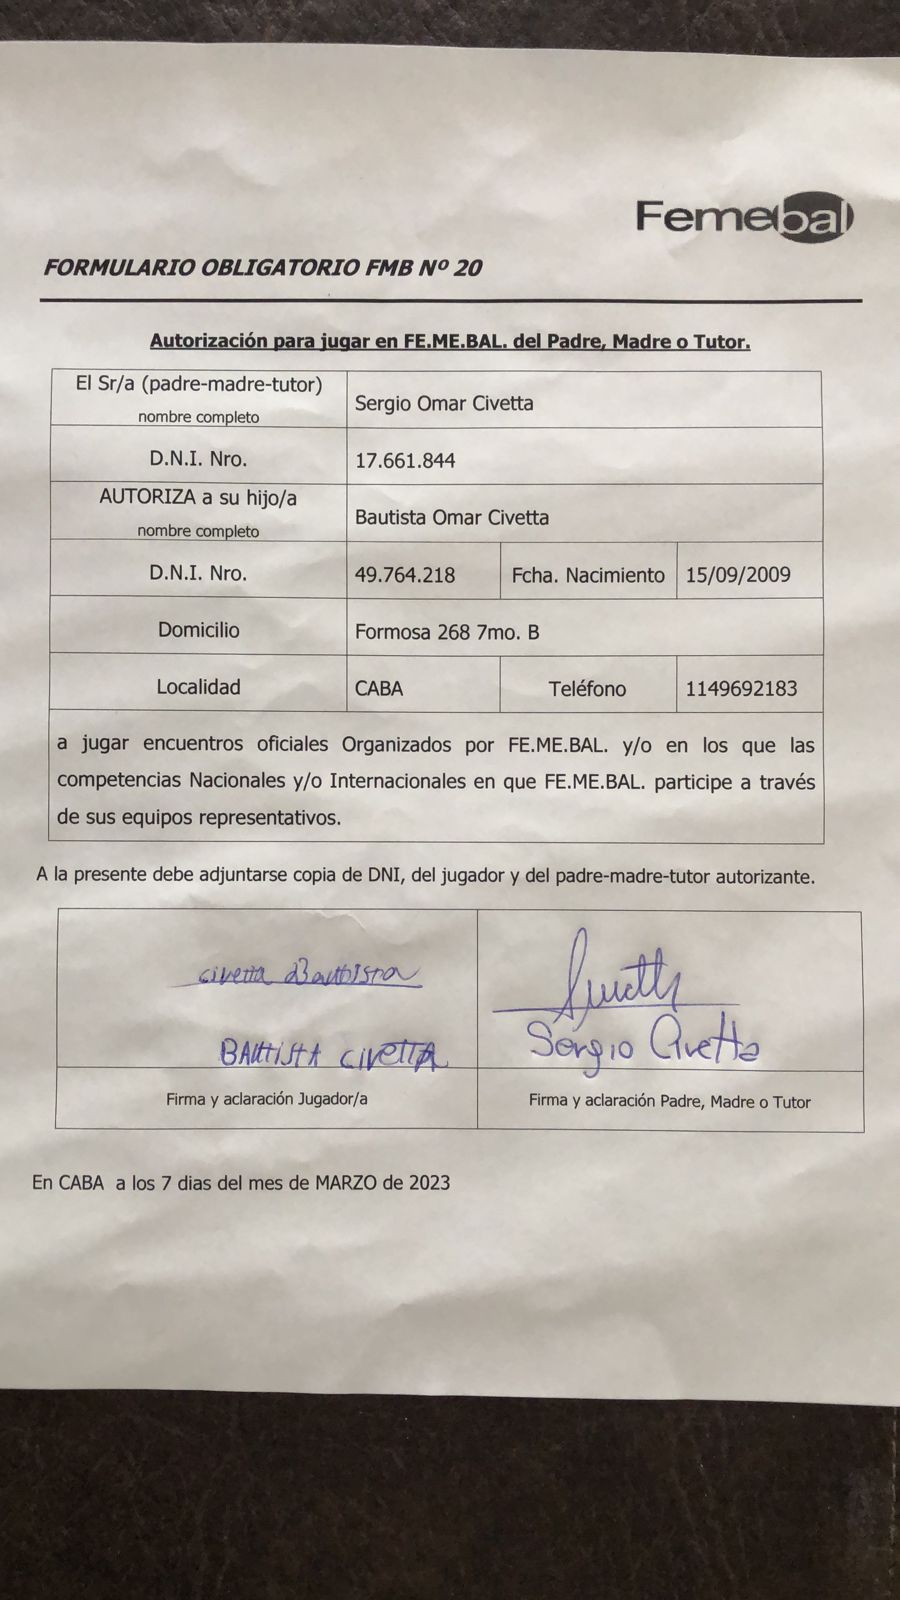 Femebal
FORMULARIO OBLIGATORIO FMB Nº 20
Autorización para jugar en FE.ME.BAL. del Padre, Madre o Tutor.
El Sr/a (padre-madre-tutor)
nombre completo
Sergio Omar Civetta
D.N.I. Nro.
17.661.844
AUTORIZA a su hijo/a
nombre completo
Bautista Omar Civetta
D.N.I. Nro.
49.764.218
Fcha. Nacimiento
15/09/2009
Domicilio
Formosa 268 7mo. B
Localidad
CABA
Teléfono
1149692183
a jugar encuentros oficiales Organizados por FE.ME.BAL. y/o en los que las
competencias Nacionales y/o Internacionales en que FE.ME.BAL. participe a través
de sus equipos representativos.
A la presente debe adjuntarse copia de DNI, del jugador y del padre-madre-tutor autorizante.
civetta Bautista
BAUTISTA CIVETTA
Firma y aclaración Jugador/a
Sergio Civetta
Firma y aclaración Padre, Madre o Tutor
En CABA a los 7 dias del mes de MARZO de 2023